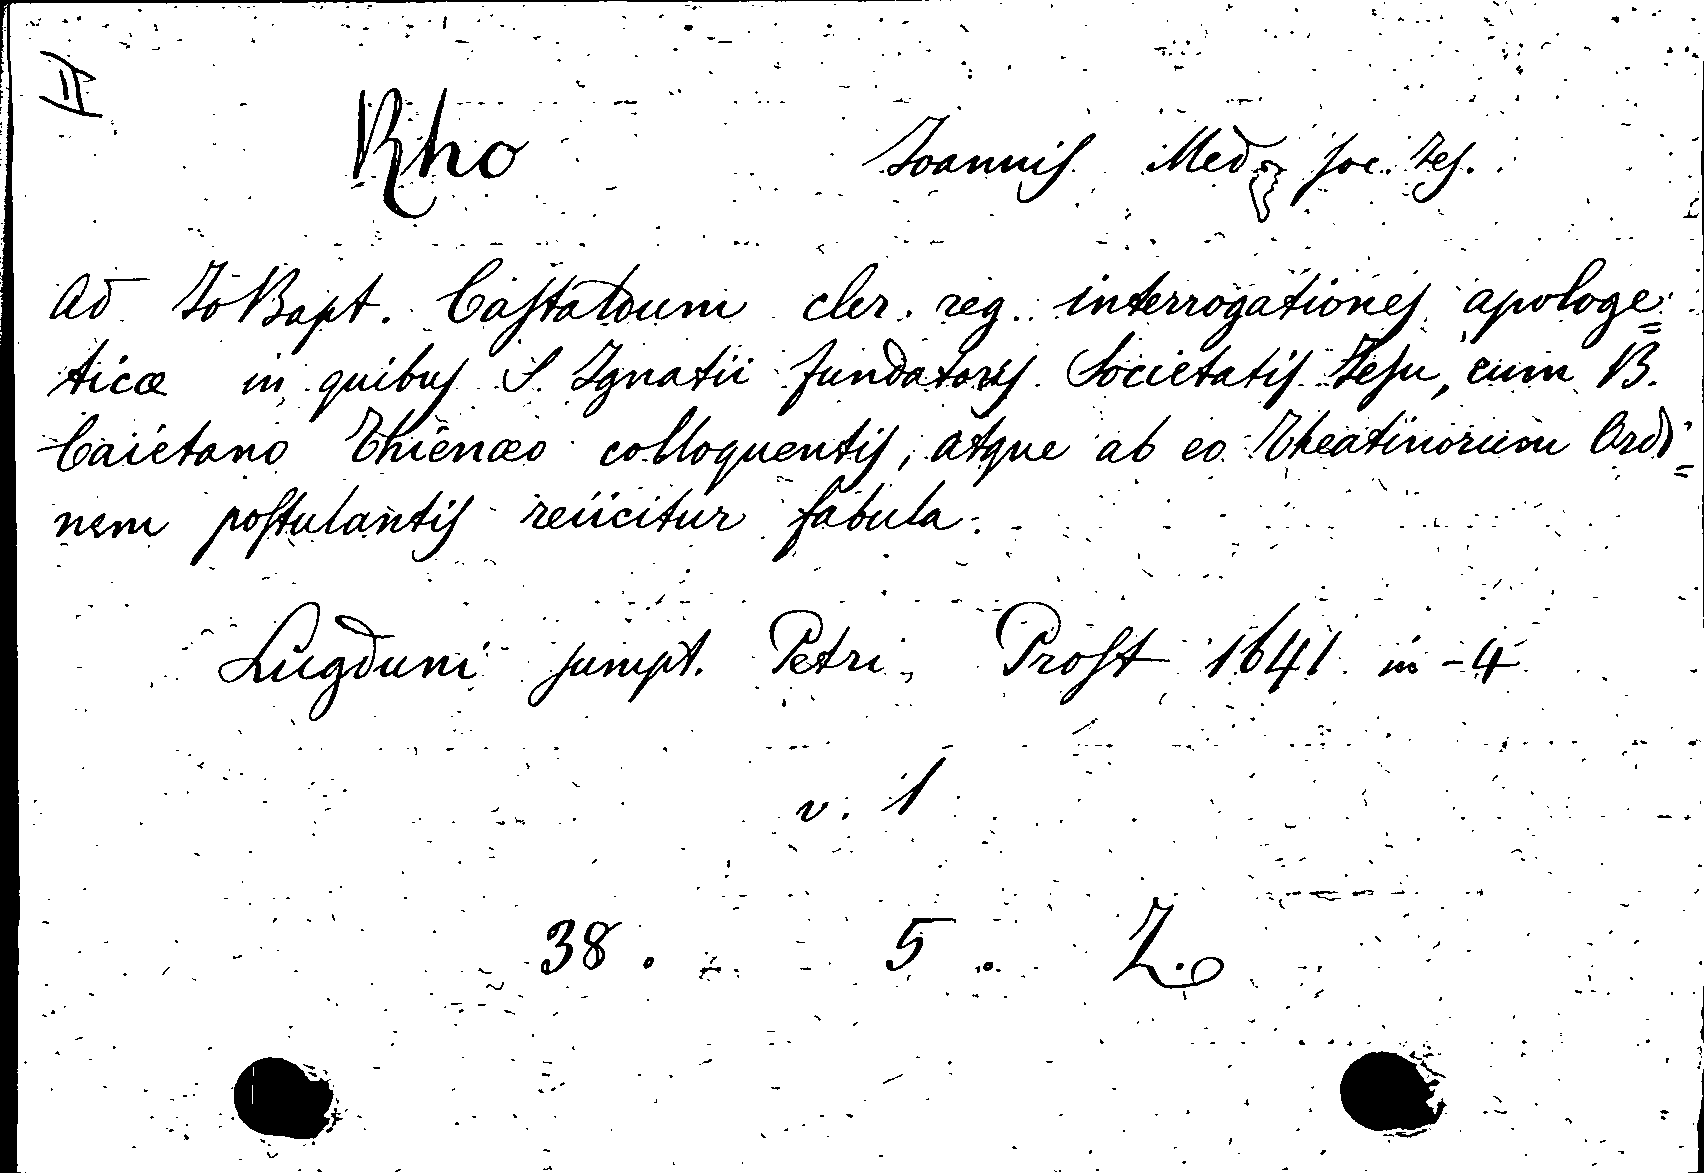 II
Rho Ioannis Med. soc. Jes.
Ad Io Bapt. Castaldum cler. reg. interrogationes apologe=
ticæ in quibus S. Ignatii fundatoris Societatis Jesu, cum B.
Caietano Thienæo colloquentis, atque ab eo Theatinorum Ordi=
nem postulantis reiicitur fabula.
Lugduni sumpt. Petri Prost 1641 in-4
v. 1
38. 5. Z.